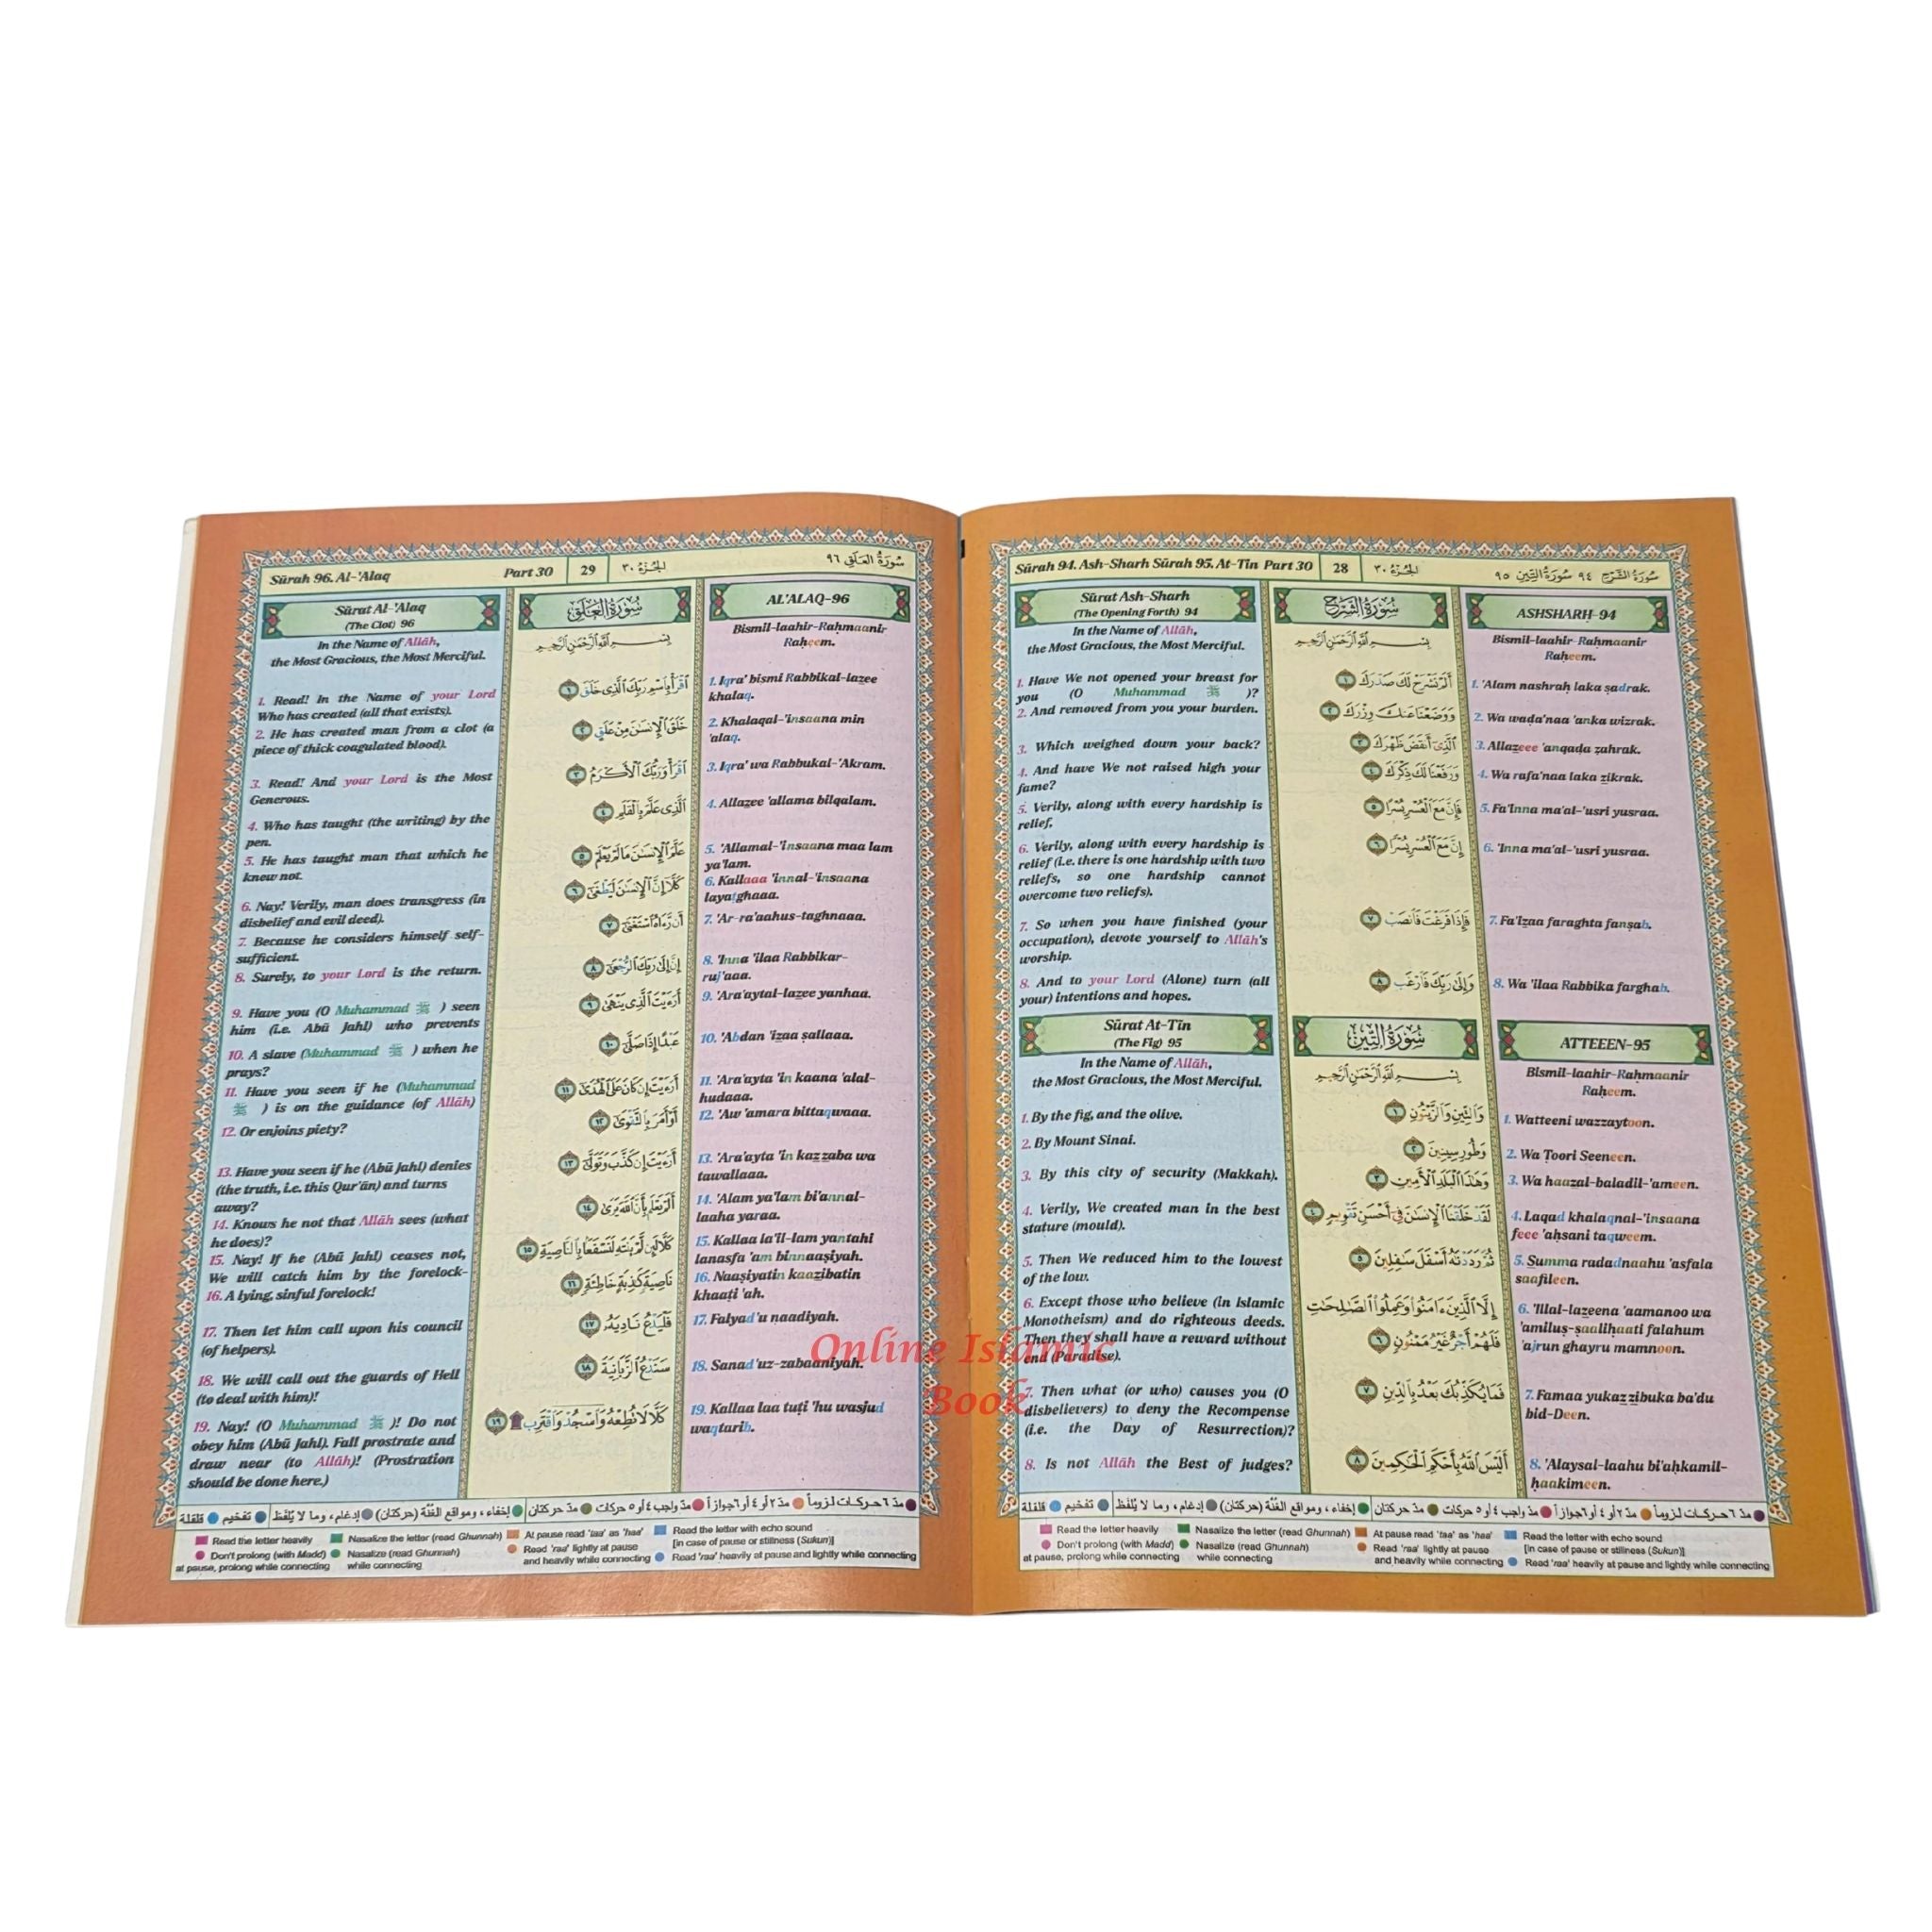 Sūrah 96. Al-'Alaq
Part 30
29
الجزء ٣٠
سورة العلق ٩٦
Sūrat Al-'Alaq
(The Clot) 96
In the Name of Allâh,
the Most Gracious, the Most Merciful.
1. Read! In the Name of your Lord
Who has created (all that exists).
2. He has created man from a clot (a
piece of thick coagulated blood).
3. Read! And your Lord is the Most
Generous.
4. Who has taught (the writing) by the
pen.
5. He has taught man that which he
knew not.
6. Nay! Verily, man does transgress (in
disbelief and evil deed).
7. Because he considers himself self-
sufficient.
8. Surely, to your Lord is the return.
9. Have you (O Muhammad ﷺ ) seen
him (i.e. Abū Jahl) who prevents
10. A slave (Muhammad ﷺ ) when he
prays?
11. Have you seen if he (Muhammad
ﷺ ) is on the guidance (of Allâh)
12. Or enjoins piety?
13. Have you seen if he (Abū Jahl) denies
(the truth, i.e. this Qur'ān) and turns
away?
14. Knows he not that Allâh sees (what
he does)?
15. Nay! If he (Abū Jahl) ceases not,
We will catch him by the forelock-
16. A lying, sinful forelock!
17. Then let him call upon his council
(of helpers).
18. We will call out the guards of Hell
(to deal with him)!
19. Nay! (O Muhammad ﷺ )! Do not
obey him (Abū Jahl). Fall prostrate and
draw near (to Allâh)! (Prostration
should be done here.)
سُورَةُ العَلَقِ
بِسْمِ ٱللَّهِ ٱلرَّحْمَٰنِ ٱلرَّحِيمِ
ٱقْرَأْ بِٱسْمِ رَبِّكَ ٱلَّذِى خَلَقَ ١
خَلَقَ ٱلْإِنسَٰنَ مِنْ عَلَقٍ ٢
ٱقْرَأْ وَرَبُّكَ ٱلْأَكْرَمُ ٣
ٱلَّذِى عَلَّمَ بِٱلْقَلَمِ ٤
عَلَّمَ ٱلْإِنسَٰنَ مَا لَمْ يَعْلَمْ ٥
كَلَّآ إِنَّ ٱلْإِنسَٰنَ لَيَطْغَىٰٓ ٦
أَن رَّءَاهُ ٱسْتَغْنَىٰٓ ٧
إِنَّ إِلَىٰ رَبِّكَ ٱلرُّجْعَىٰٓ ٨
أَرَءَيْتَ ٱلَّذِى يَنْهَىٰ ٩
عَبْدًا إِذَا صَلَّىٰٓ ١٠
أَرَءَيْتَ إِن كَانَ عَلَى ٱلْهُدَىٰٓ ١١
أَوْ أَمَرَ بِٱلتَّقْوَىٰٓ ١٢
أَرَءَيْتَ إِن كَذَّبَ وَتَوَلَّىٰٓ ١٣
أَلَمْ يَعْلَم بِأَنَّ ٱللَّهَ يَرَىٰ ١٤
كَلَّا لَئِن لَّمْ يَنتَهِ لَنَسْفَعًۢا بِٱلنَّاصِيَةِ ١٥
نَاصِيَةٍ كَٰذِبَةٍ خَاطِئَةٍ ١٦
فَلْيَدْعُ نَادِيَهُۥ ١٧
سَنَدْعُ ٱلزَّبَانِيَةَ ١٨
كَلَّا لَا تُطِعْهُ وَٱسْجُدْ وَٱقْتَرِب ۩ ١٩
AL'ALAQ-96
Bismil-laahir-Raḥmaanir
Raḥeem.
1. Iqra' bismi Rabbikal-lazee
khalaq.
2. Khalaqal-'insaana min
'alaq.
3. Iqra' wa Rabbukal-'Akram.
4. Allazee 'allama bilqalam.
5. 'Allamal-'insaana maa lam
ya'lam.
6. Kallaaa 'innal-'insaana
layaṭghaaa.
7. 'Ar-ra'aahus-taghnaaa.
8. 'Inna 'ilaa Rabbikar-
ruj'aaa.
9. 'Ara'aytal-lazee yanhaa.
10. 'Abdan 'izaa ṣallaaa.
11. 'Ara'ayta 'in kaana 'alal-
hudaaa.
12. 'Aw 'amara bittaqwaaa.
13. 'Ara'ayta 'in kazzaba wa
tawallaaa.
14. 'Alam ya'lam bi'annal-
laaha yaraa.
15. Kallaa la'il-lam yantahi
lanasfa 'am binnaaṣiyah.
16. Naaṣiyatin kaazibatin
khaaṭi 'ah.
17. Falyad'u naadiyah.
18. Sanad'uz-zabaaniyah.
19. Kallaa laa tuṭi 'hu wasjud
waqtarib.
مدّ ٦ حركات لزوماً مدّ ٢ أو ٤ أو ٦ جوازاً مدّ واجب ٤ أو ٥ حركات مدّ حركتان إخفاء، ومواقع الغُنَّة (حركتان) إدغام، وما لا يُلفَظ تفخيم قلقلة
Read the letter heavily Nasalize the letter (read Ghunnah) At pause read 'taa' as 'haa' Read the letter with echo sound
[in case of pause or stillness (Sukun)]
Don't prolong (with Madd) Nasalize (read Ghunnah) Read 'raa' lightly at pause
at pause, prolong while connecting while connecting and heavily while connecting Read 'raa' heavily at pause and lightly while connecting
Sūrah 94. Ash-Sharh Sūrah 95. At-Tīn Part 30
28
الجزء ٣٠
سورة الشرح ٩٤ سورة التين ٩٥
Sūrat Ash-Sharh
(The Opening Forth) 94
In the Name of Allâh,
the Most Gracious, the Most Merciful.
1. Have We not opened your breast for
you (O Muhammad ﷺ )?
2. And removed from you your burden.
3. Which weighed down your back?
4. And have We not raised high your
fame?
5. Verily, along with every hardship is
relief,
6. Verily, along with every hardship is
relief (i.e. there is one hardship with two
reliefs, so one hardship cannot
overcome two reliefs).
7. So when you have finished (your
occupation), devote yourself to Allâh's
worship.
8. And to your Lord (Alone) turn (all
your) intentions and hopes.
سُورَةُ الشَّرْحِ
بِسْمِ ٱللَّهِ ٱلرَّحْمَٰنِ ٱلرَّحِيمِ
أَلَمْ نَشْرَحْ لَكَ صَدْرَكَ ١
وَوَضَعْنَا عَنكَ وِزْرَكَ ٢
ٱلَّذِىٓ أَنقَضَ ظَهْرَكَ ٣
وَرَفَعْنَا لَكَ ذِكْرَكَ ٤
فَإِنَّ مَعَ ٱلْعُسْرِ يُسْرًا ٥
إِنَّ مَعَ ٱلْعُسْرِ يُسْرًا ٦
فَإِذَا فَرَغْتَ فَٱنصَبْ ٧
وَإِلَىٰ رَبِّكَ فَٱرْغَب ٨
ASHSHARḤ-94
Bismil-laahir-Raḥmaanir
Raḥeem.
1. 'Alam nashraḥ laka ṣadrak.
2. Wa waḍa'naa 'anka wizrak.
3. Allazeee 'anqaḍa ẓahrak.
4. Wa rafa'naa laka zikrak.
5. Fa'Inna ma'al-'usri yusraa.
6. 'Inna ma'al-'usri yusraa.
7. Fa'Izaa faraghta fanṣab.
8. Wa 'ilaa Rabbika farghab.
Sūrat At-Tīn
(The Fig) 95
In the Name of Allâh,
the Most Gracious, the Most Merciful.
1. By the fig, and the olive.
2. By Mount Sinai.
3. By this city of security (Makkah).
4. Verily, We created man in the best
stature (mould).
5. Then We reduced him to the lowest
of the low.
6. Except those who believe (in Islamic
Monotheism) and do righteous deeds.
Then they shall have a reward without
end (Paradise).
7. Then what (or who) causes you (O
disbelievers) to deny the Recompense
(i.e. the Day of Resurrection)?
8. Is not Allâh the Best of judges?
سُورَةُ التِّينِ
بِسْمِ ٱللَّهِ ٱلرَّحْمَٰنِ ٱلرَّحِيمِ
وَٱلتِّينِ وَٱلزَّيْتُونِ ١
وَطُورِ سِينِينَ ٢
وَهَٰذَا ٱلْبَلَدِ ٱلْأَمِينِ ٣
لَقَدْ خَلَقْنَا ٱلْإِنسَٰنَ فِىٓ أَحْسَنِ تَقْوِيمٍ ٤
ثُمَّ رَدَدْنَٰهُ أَسْفَلَ سَٰفِلِينَ ٥
إِلَّا ٱلَّذِينَ ءَامَنُوا۟ وَعَمِلُوا۟ ٱلصَّٰلِحَٰتِ
فَلَهُمْ أَجْرٌ غَيْرُ مَمْنُونٍ ٦
فَمَا يُكَذِّبُكَ بَعْدُ بِٱلدِّينِ ٧
أَلَيْسَ ٱللَّهُ بِأَحْكَمِ ٱلْحَٰكِمِينَ ٨
ATTEEEN-95
Bismil-laahir-Raḥmaanir
Raḥeem.
1. Watteeni wazzaytoon.
2. Wa Ṭoori Seeneen.
3. Wa haazal-baladil-'ameen.
4. Laqad khalaqnal-'insaana
feee 'aḥsani taqweem.
5. Summa radadnaahu 'asfala
saafileen.
6. 'Illal-lazeena 'aamanoo wa
'amiluṣ-ṣaaliḥaati falahum
'ajrun ghayru mamnoon.
7. Famaa yukazzibuka ba'du
bid-Deen.
8. 'Alaysal-laahu bi'aḥkamil-
ḥaakimeen.
مدّ ٦ حركات لزوماً مدّ ٢ أو ٤ أو ٦ جوازاً مدّ واجب ٤ أو ٥ حركات مدّ حركتان إخفاء، ومواقع الغُنَّة (حركتان) إدغام، وما لا يُلفَظ تفخيم قلقلة
Read the letter heavily Nasalize the letter (read Ghunnah) At pause read 'taa' as 'haa' Read the letter with echo sound
[in case of pause or stillness (Sukun)]
Don't prolong (with Madd) Nasalize (read Ghunnah) Read 'raa' lightly at pause
at pause, prolong while connecting while connecting and heavily while connecting Read 'raa' heavily at pause and lightly while connecting
Online Islamic
Book